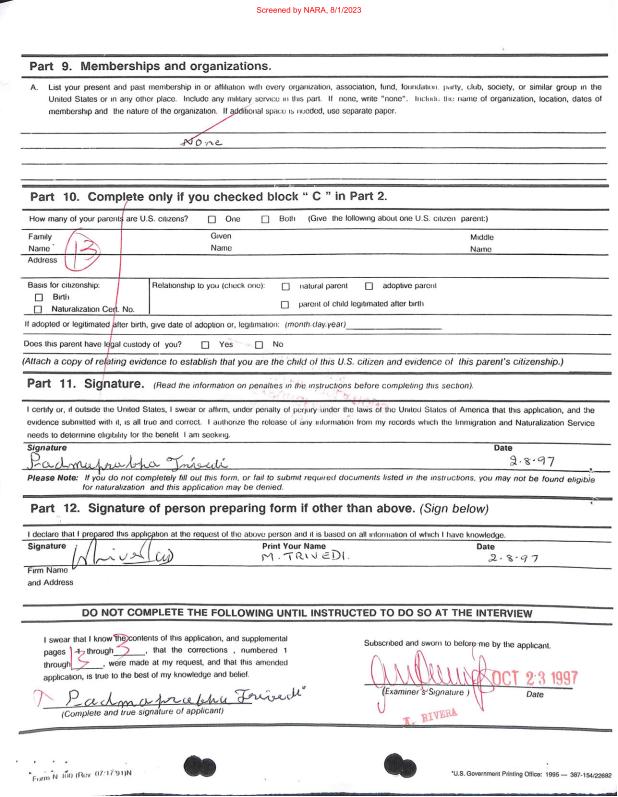 Screened by NARA, 8/1/2023
Part 9. Memberships and organizations.
A. List your present and past membership in or affiliation with every organization, association, fund, foundation, party, club, society, or similar group in the
United States or in any other place. Include any military service in this part. If none, write "none". Include the name of organization, location, dates of
membership and the nature of the organization. If additional space is needed, use separate paper.
None
Part 10. Complete only if you checked block " C " in Part 2.
How many of your parents are U.S. citizens? ☐ One ☐ Both (Give the following about one U.S. citizen parent:)
Family Given Middle
Name 13 Name Name
Address
Basis for citizenship: Relationship to you (check one): ☐ natural parent ☐ adoptive parent
☐ Birth
☐ Naturalization Cert. No. ☐ parent of child legitimated after birth
If adopted or legitimated after birth, give date of adoption or, legitimation: (month-day-year)
Does this parent have legal custody of you? ☐ Yes ☐ No
(Attach a copy of relating evidence to establish that you are the child of this U.S. citizen and evidence of this parent's citizenship.)
Part 11. Signature. (Read the information on penalties in the instructions before completing this section).
I certify or, if outside the United States, I swear or affirm, under penalty of perjury under the laws of the United States of America that this application, and the
evidence submitted with it, is all true and correct. I authorize the release of any information from my records which the Immigration and Naturalization Service
needs to determine eligibility for the benefit I am seeking.
Signature Date
Padmaprabha Trivedi 2-8-97
Please Note: If you do not completely fill out this form, or fail to submit required documents listed in the instructions, you may not be found eligible
for naturalization and this application may be denied.
Part 12. Signature of person preparing form if other than above. (Sign below)
I declare that I prepared this application at the request of the above person and it is based on all information of which I have knowledge.
Signature Print Your Name Date
M. TRIVEDI. 2-8-97
Firm Name
and Address
DO NOT COMPLETE THE FOLLOWING UNTIL INSTRUCTED TO DO SO AT THE INTERVIEW
I swear that I know the contents of this application, and supplemental
pages 1 through 3, that the corrections, numbered 1
through 13, were made at my request, and that this amended
application, is true to the best of my knowledge and belief.
Padmaprabha Trivedi
(Complete and true signature of applicant)
Subscribed and sworn to before me by the applicant.
OCT 23 1997
(Examiner's Signature) Date
RIVERA
Form N-400 (Rev 07/17/91)N
*U.S. Government Printing Office: 1995 — 387-154/22682